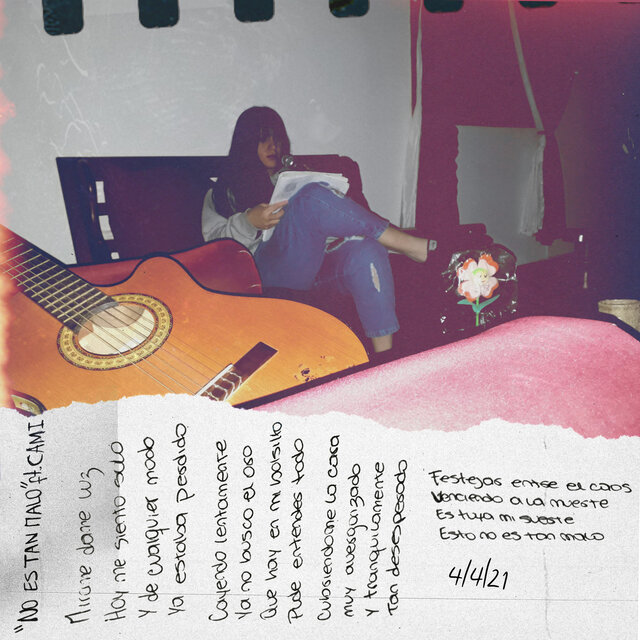 "NO ES TAN MALO" ft. CAMI
Mirame dame luz
Hoy me siento solo
Y de cualquier modo
Ya estaba perdido
Cayendo lentamente
Ya no busco el oso
Que hay en mi bolsillo
Pude entender todo
Cubriendome la cara
muy avergonzado
Y tranquilamente
Tan desesperado
Festejar entre el caos
Venciendo a la muerte
Es tuya mi suerte
Esto no es tan malo
4/4/21